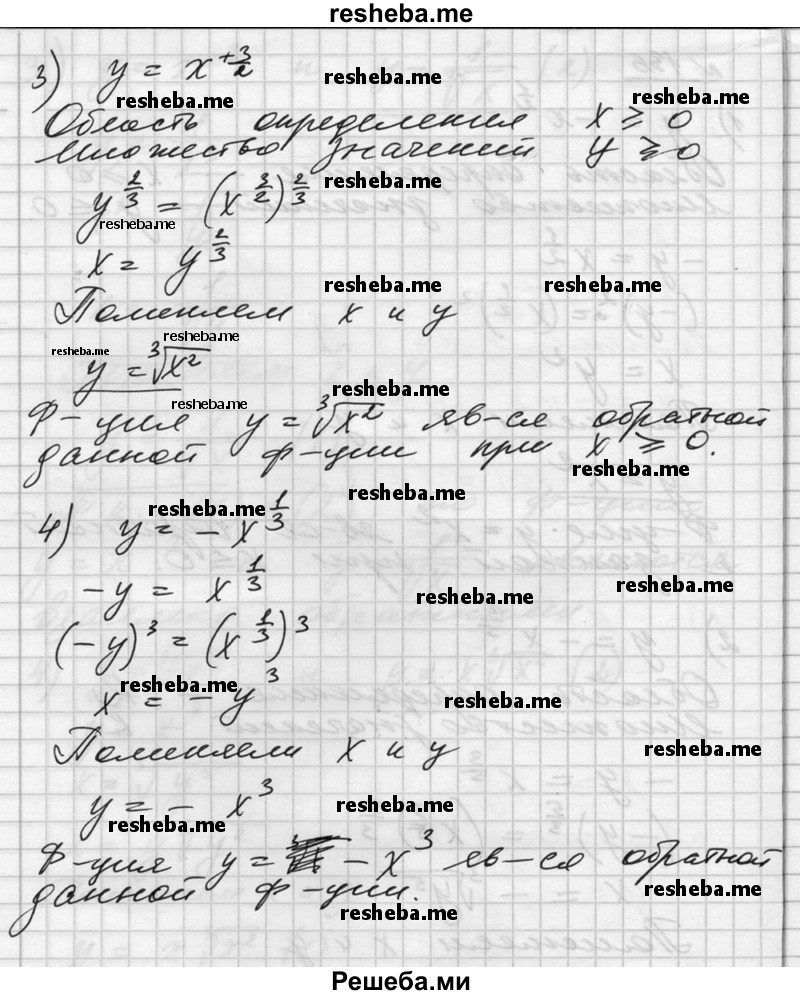 resheba.me
3) y = x^{+3/2}
resheba.me
resheba.me resheba.me
Область определения x ≥ 0
множество значений y ≥ 0
y^{2/3} = (x^{3/2})^{2/3} resheba.me
resheba.me
x = y^{2/3}
resheba.me resheba.me
Поменяем x и y
resheba.me
resheba.me
y = ∛x²
resheba.me
resheba.me
Ф-ция y = ∛x² яв-ся обратной
данной ф-ции при x ≥ 0.
resheba.me
resheba.me
4) y = - x^{1/3}
resheba.me
-y = x^{1/3}
resheba.me resheba.me
(-y)³ = (x^{1/3})³
resheba.me
x = - y³
resheba.me
Поменяли x и y
resheba.me
y = - x³
resheba.me
resheba.me
Ф-ция y = - x³ яв-ся обратной
данной ф-ции.
resheba.me
resheba.me
Решеба.ми